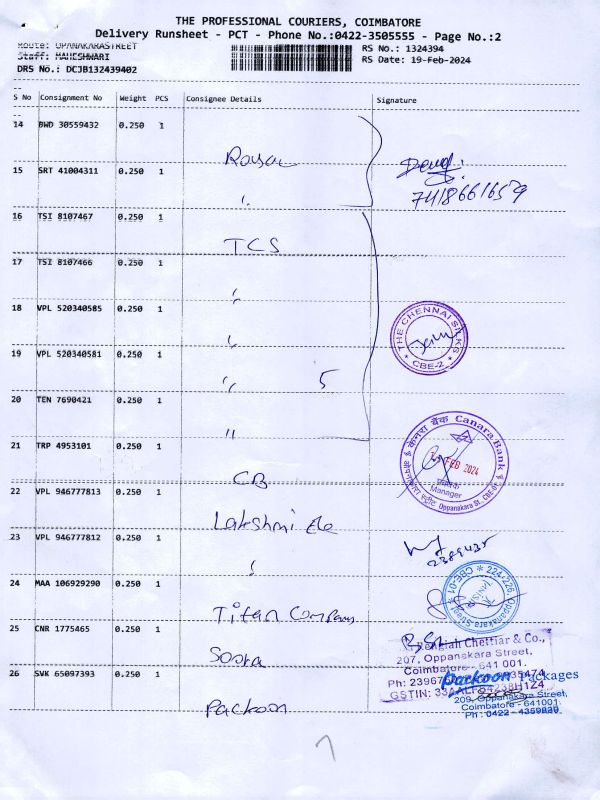 THE PROFESSIONAL COURIERS, COIMBATORE
Delivery Runsheet - PCT - Phone No.:0422-3505555 - Page No.:2
Route: OPANAKARASTREET
RS No.: 1324394
Staff: MAHESHWARI
RS Date: 19-Feb-2024
DRS No.: DCJB132439402
S No Consignment No Weight PCS Consignee Details Signature
14 BWD 30559432 0.250 1
15 SRT 41004311 0.250 1
7418661659
16 TSI 8107467 0.250 1
TCS
17 TSI 8107466 0.250 1
18 VPL 520340585 0.250 1
THE CHENNAI SILKS
* CBE-2 *
19 VPL 520340581 0.250 1
5
20 TEN 7690421 0.250 1
21 TRP 4953101 0.250 1
केनरा बैंक Canara Bank
FEB 2024
Manager
Oppanakara St., CBE-01
CB
22 VPL 946777813 0.250 1
Lakshmi Ele
23 VPL 946777812 0.250 1
24 MAA 106929290 0.250 1
224-226, Oppanakara Street
* CBE-01 *
Titan Company
25 CNR 1775465 0.250 1
Rengiah Chettiar & Co.,
207, Oppanakara Street,
Coimbatore - 641 001.
26 SVK 65097393 0.250 1
Parkoon Packages
209, Oppanakara Street,
Coimbatore - 641001.
Packoon